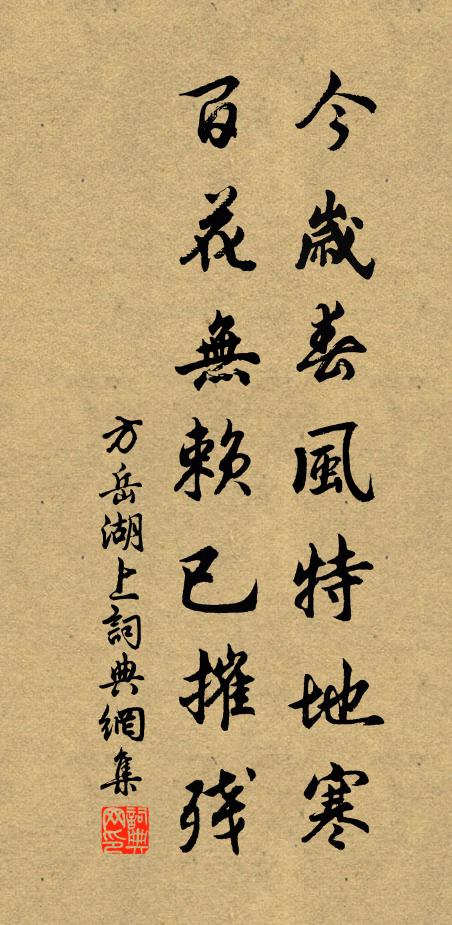 今歲春風特地寒
百花無賴已摧残
方岳湖上詞典網集
詞典
网印